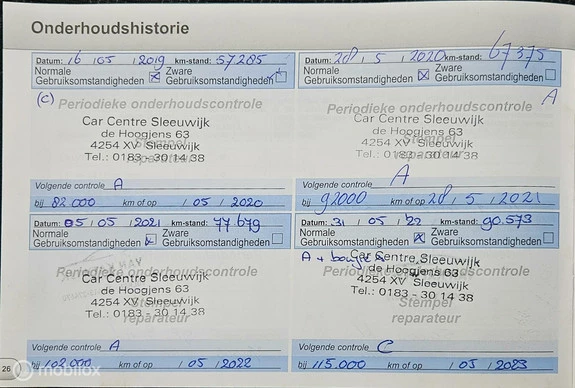 Onderhoudshistorie
Datum: 16 / 05 / 2019 km-stand: 57285
Normale Gebruiksomstandigheden Zware Gebruiksomstandigheden
(C)
Periodieke onderhoudscontrole
Car Centre Sleeuwijk
de Hoogjens 63
4254 XV Sleeuwijk
Tel.: 0183 - 30 14 38
Stempel
reparateur
Volgende controle A
bij 82000 km of op / 05 / 2020
Datum: 28 / 5 / 2020 km-stand: 67375
Normale Gebruiksomstandigheden Zware Gebruiksomstandigheden
A
Periodieke onderhoudscontrole
Car Centre Sleeuwijk
de Hoogjens 63
4254 XV Sleeuwijk
Tel.: 0183 - 30 14 38
Stempel
reparateur
Volgende controle A
bij 92000 km of op 28 / 5 / 2021
Datum: 05 / 05 / 2021 km-stand: 77679
Normale Gebruiksomstandigheden Zware Gebruiksomstandigheden
Periodieke onderhoudscontrole
Car Centre Sleeuwijk
de Hoogjens 63
4254 XV Sleeuwijk
Tel.: 0183 - 30 14 38
Stempel
reparateur
Volgende controle A
bij 102.000 km of op / 05 / 2022
Datum: 31 / 05 / 22 km-stand: 90.573
Normale Gebruiksomstandigheden Zware Gebruiksomstandigheden
A + bougies
Periodieke onderhoudscontrole
Car Centre Sleeuwijk
de Hoogjens 63
4254 XV Sleeuwijk
Tel.: 0183 - 30 14 38
Stempel
reparateur
Volgende controle C
bij 115.000 km of op / 05 / 2023
26
mobilox